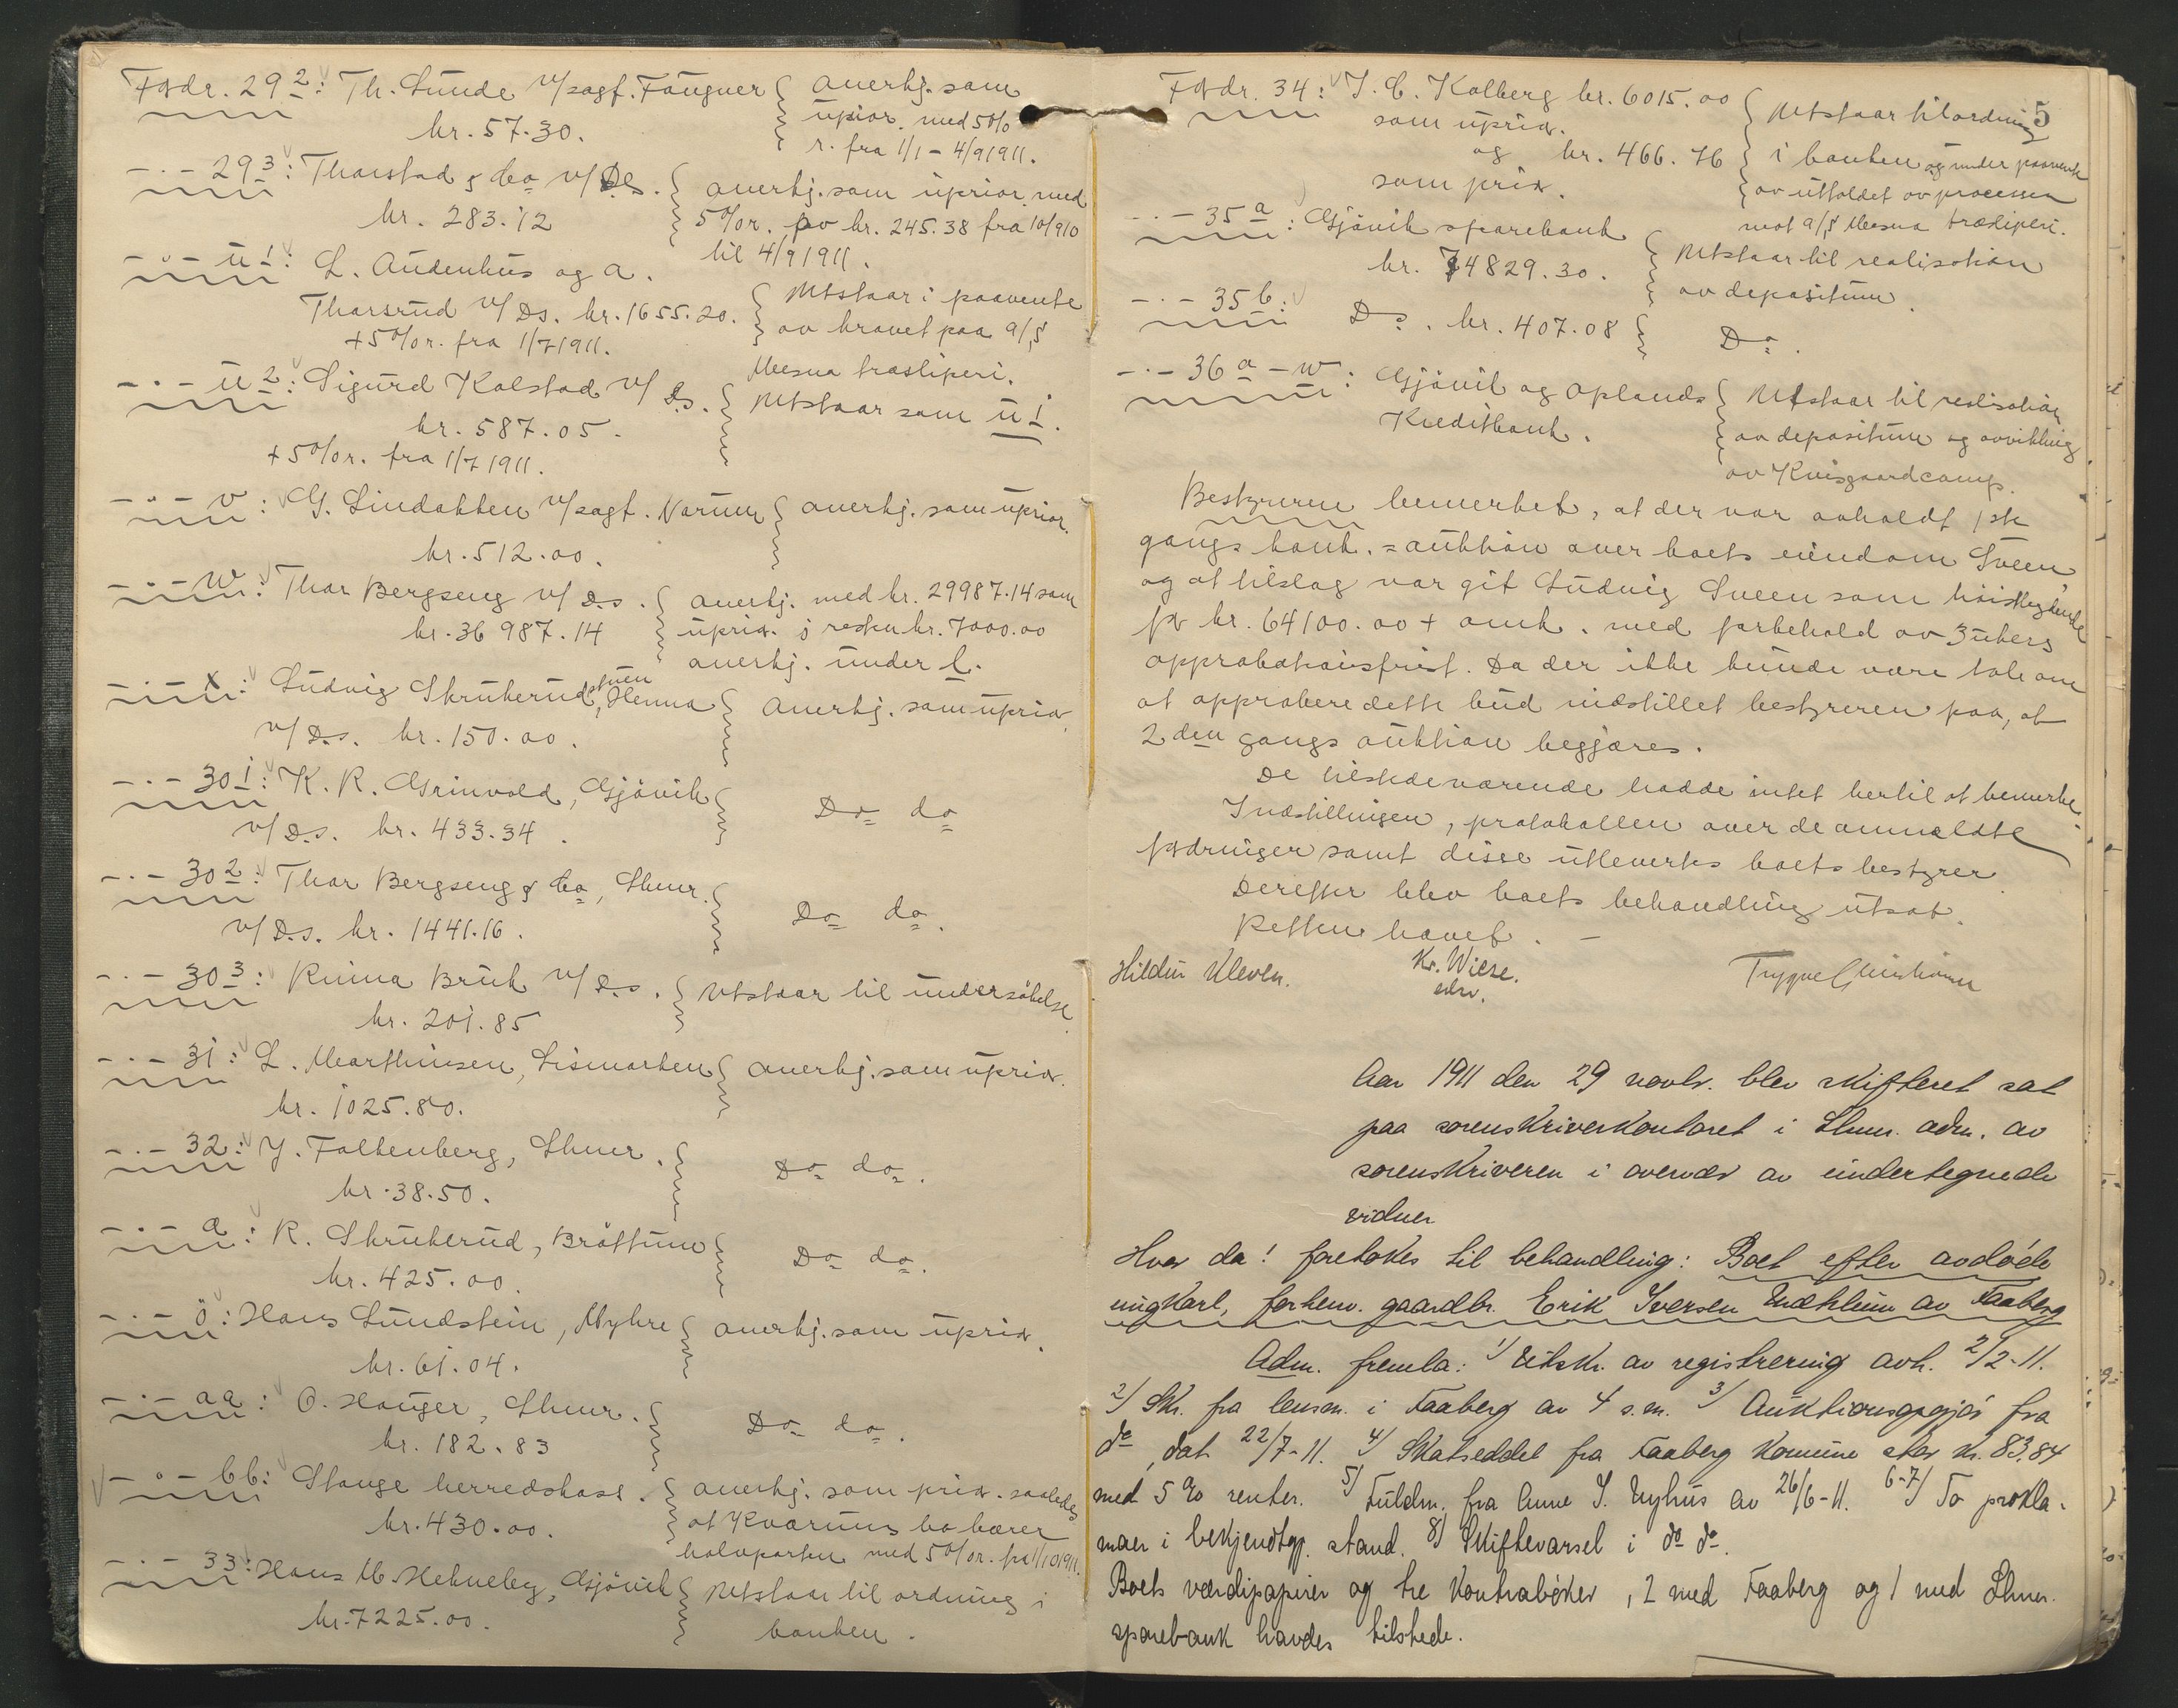 Fordr. 29 2: Th. Lunde v/sagf. Fougner
kr. 57.30.
anerkj. som
uprior. med 5%
r. fra 1/1 - 4/9 1911.
-.- 29 3: Thorstad & Co v/ Ds.
kr. 283.12
anerkj. som uprior. med
5%r. av kr. 245.38 fra 10/9 10
til 4/9 1911.
-.- u 1: L. Audenhus og A.
Thorsrud v/ Ds. kr. 1655.20.
+ 5%r. fra 1/7 1911.
Utstaar i paavente
av kravet paa a/s
Mesna træsliperi.
-.- u 2: Sigurd Kolstad v/ Ds.
kr. 587.05.
+ 5%r. fra 1/7 1911.
Utstaar som u 1.
-.- v: G. Lindalkken v/sagf. Narum
kr. 512.00.
anerkj. som uprior.
-.- w: Thor Bergseng v/ Ds.
kr. 36 987.14
anerkj. med kr. 29987.14 som
uprior. j resten kr. 7000.00
anerkj. under l.
-.- x: Ludvig Skrukerud, Henna
v/ Ds. kr. 150.00.
Anerkj. som uprior.
-.- 30 1: K. R. Grinvold, Gjövik
v/ Ds. kr. 433.34.
Do do
-.- 30 2: Thor Bergseng & Co, Lhmr.
v/ Ds. kr. 1441.16.
Do do.
-.- 30 3: Ruina Bruk v/ Ds.
kr. 201.85
Utstaar til undersökelse.
-.- 31: L. Marthinsen, Lismarken
kr. 1025.80.
anerkj. som uprior.
-.- 32: J. Falkenberg, Lhmr.
kr. 38.50.
Do do.
-.- a: R. Skrukerud, Bröttum
kr. 425.00.
Do do.
-.- ö: Hans Lundstein, Myhre
kr. 61.04.
anerkj. som uprior.
-.- aa: O. Hauger, Lhmr.
kr. 182.83
Do do.
-.- bb: Stange herredskass.
kr. 430.00.
anerkj. som prior. saaledes
at Kværums bo bærer
halvparten med 5%r. fra 1/10 1911.
-.- 33: Hans M. Helneby, Gjövik
kr. 7225.00.
Utstaar til ordning i
banken.
5
Fordr. 34: J. C. Kolberg kr. 6015.00
som uprior.
og kr. 466.76
som prior.
Utstaar til ordning
i banken og under paavente
av utfaldet av processen
mot a/s Mesna træsliperi.
-.- 35 a: Gjövik sparebank
kr. 74829.30.
Utstaar til realisation
av depositum.
-.- 35 b:
Do. kr. 407.08
Do.
-.- 36 a - w: Gjövik og Oplands
Kreditbank.
Utstaar til realisation
av depositum og avvikling
av Kvisgaardcomp.
Bestyreren bemerket, at der var avholdt 1ste
gangs konk.=auktion over boets eiendom Sveen
og at tilslag var git Ludvig Sveen som höistbydende
for kr. 64100.00 + omk. med forbehold av 3 ukers
approbationsfrist. Da der ikke kunde være tale om
at approbere dette bud indstillet bestyreren paa, at
2den gangs auktion begjæres.
De tilstedeværende hadde intet hertil at bemerke.
Indstillingen, protokollen over de anmeldte
fordringer samt disse utlevertes boets bestyrer.
Derefter blev boets behandling utsat.
Retten hævet. -
Hildur Kleven.
Kr. Wiese.
edsv.
Trygve Christiansen
Aar 1911 den 29 novbr. blev skifteret sat
paa sorenskriverkontoret i Lhmr. adm. av
sorenskriveren i overvær av undertegnede
vidner
Hvor da! foretokes til behandling: Boet efter avdøde
ungkarl, forhenv. gaardbr. Erik Iversen Mæhlum av Faaberg
Adm. fremla: 1/ Utskr. av registrering avh. 2/2-11.
2/ Skr. fra lensm. i Faaberg av 4 s.m. 3/ Auktionsopgjør fra
do, dat. 22/7-11. 4/ Skatseddel fra Faaberg komune stor kr. 83.84
med 5 % renter. 5/ Fuldm. fra Anne I. Nyhus av 26/6-11. 6-7/ To prokla-
maer i bekjendtgj. stand. 8/ Skiftevarsel i do do.
Boets værdipapirer og tre kontrabøker, 2 med Faaberg og 1 med Lhmr.
sparebank havdes tilstede.